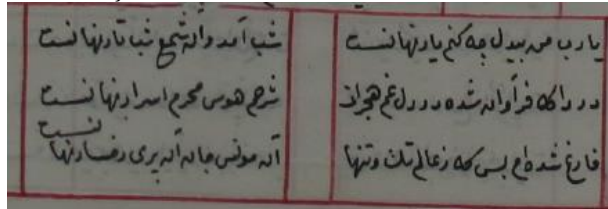 یارب من بیدل چه کنم یار نهانست شب آمد و آن شمع شب تار نهانست
دردا که فراوان شده در دل غم هجران شرحم هوس محرم اسرار نهانست
فارغ شده ام بس که ز عالم تک و تنها آن مونس جان آن پری رخسار نهانست